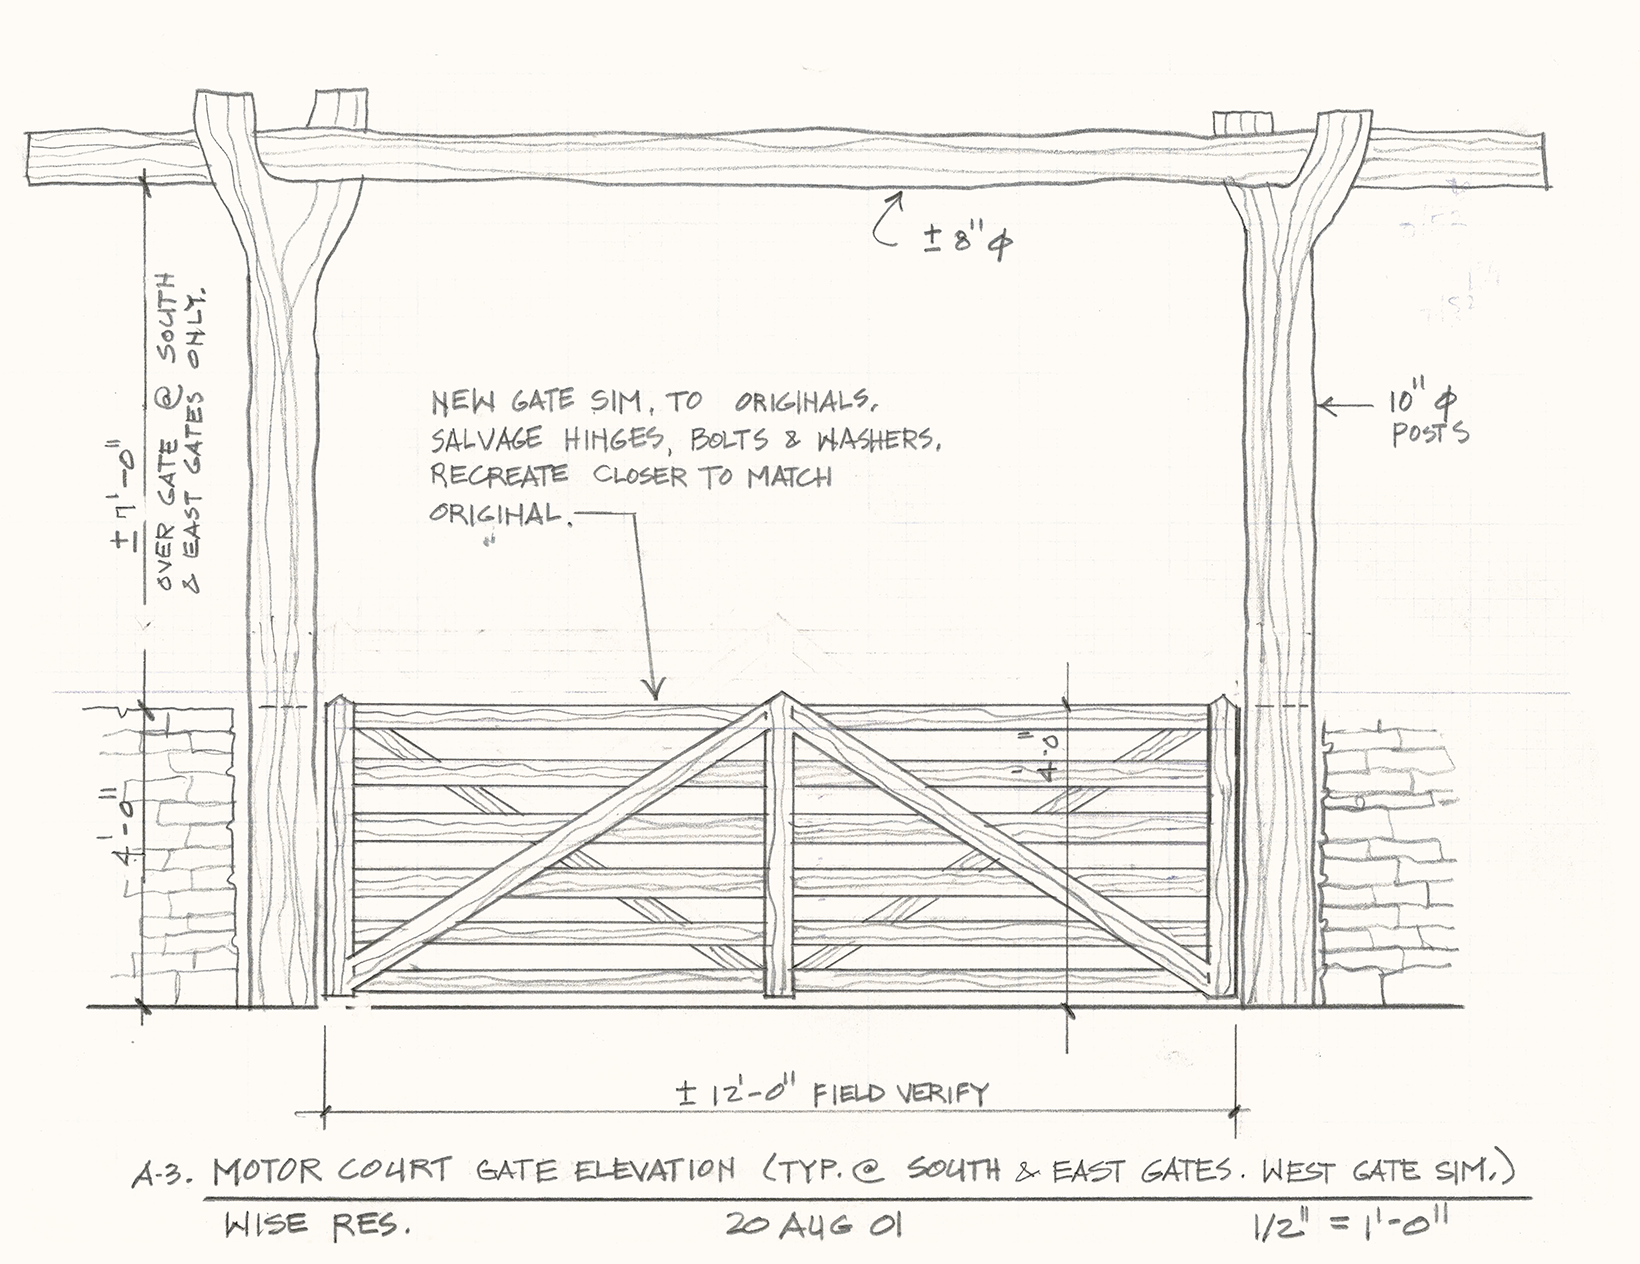 ± 8" φ
± 7'-0"
OVER GATE @ SOUTH
& EAST GATES ONLY.
NEW GATE SIM. TO ORIGINALS.
SALVAGE HINGES, BOLTS & WASHERS.
RECREATE CLOSER TO MATCH
ORIGINAL.
10" φ
POSTS
4'-0"
4'-0"
± 12'-0" FIELD VERIFY
A-3. MOTOR COURT GATE ELEVATION (TYP. @ SOUTH & EAST GATES. WEST GATE SIM.)
WISE RES. 20 AUG 01 1/2" = 1'-0"